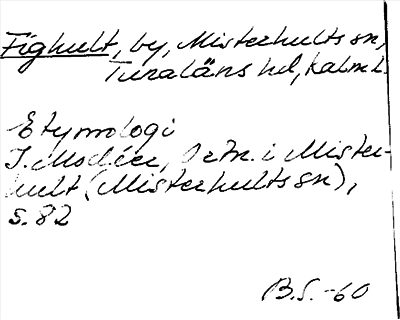 Fighult, by, Misterhults sn,
Tunaläns hd, Kalm. l.
Etymologi
I. Modéer, Ortn. i Mister-
hult (Misterhults sn),
s. 82
B.S. -60